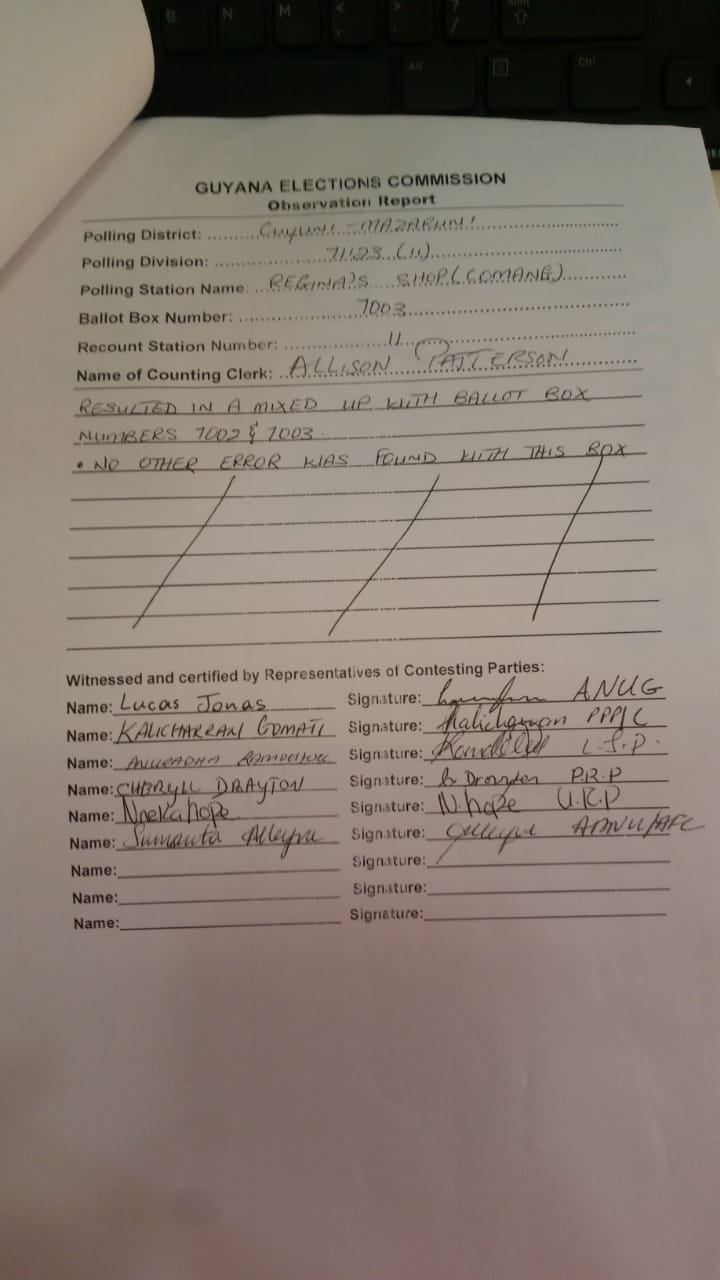 GUYANA ELECTIONS COMMISSION
Observation Report
Polling District: CUYUNI - MAZARUNI
Polling Division: 71123 (11)
Polling Station Name: REGINA'S SHOP (COMANG)
Ballot Box Number: 7003
Recount Station Number: 11
Name of Counting Clerk: ALLISON PATTERSON
RESULTED IN A MIXED UP WITH BALLOT BOX
NUMBERS 7002 & 7003.
• NO OTHER ERROR WAS FOUND WITH THIS BOX
Witnessed and certified by Representatives of Contesting Parties:
Name: Lucas Jonas Signature: ANUG
Name: KALICHARRAN GOMATI Signature: Kalicharran PPP/C
Name: ANURADHA Signature: L.J.P.
Name: CHERYLL DRAYTON Signature: C. Drayton P.R.P
Name: Nneka hope Signature: N. hope U.R.P
Name: Sumanta Alleyne Signature: Alleyne APNU/AFC
Name: Signature:
Name: Signature:
Name: Signature: